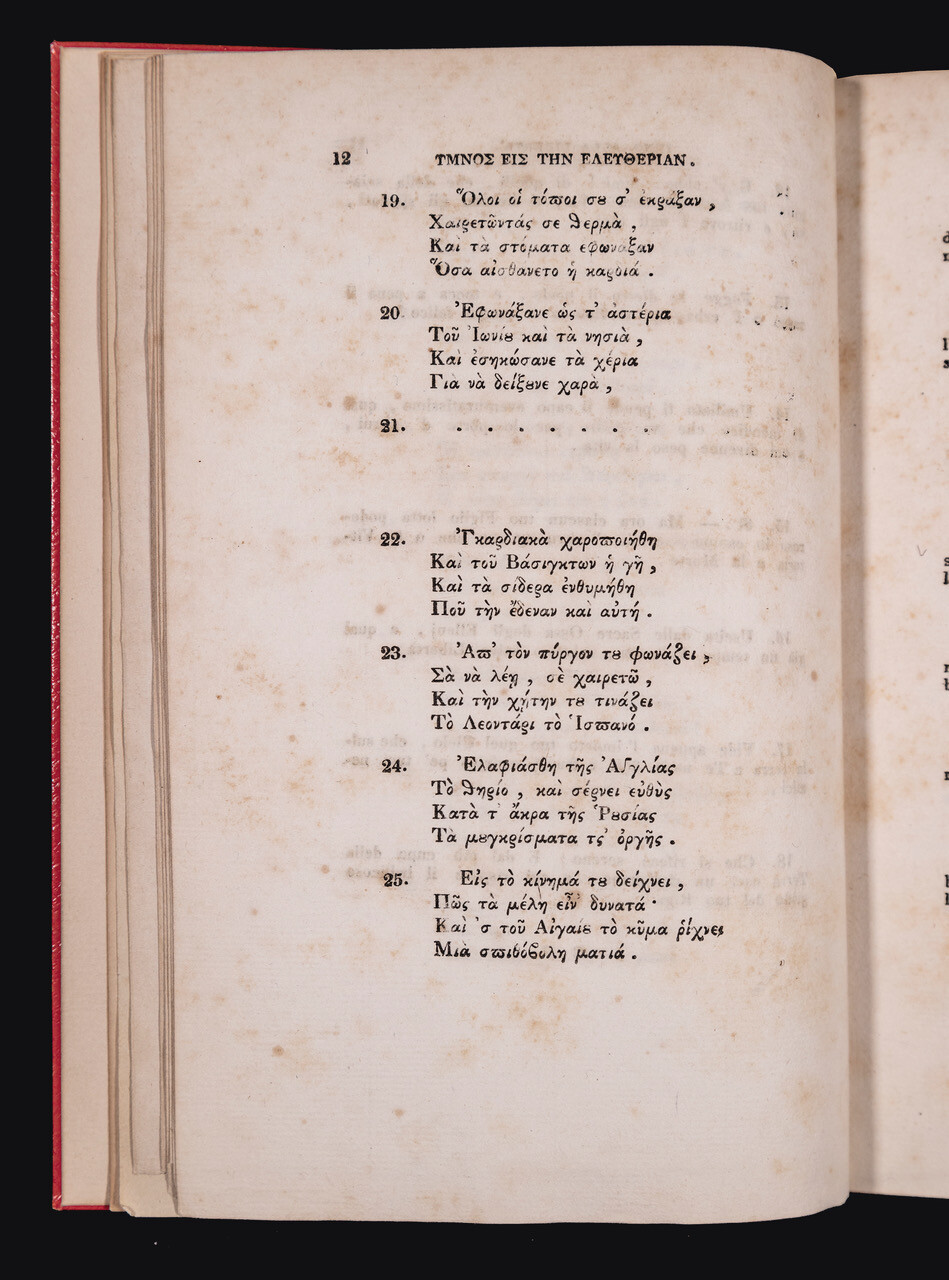 12 ΥΜΝΟΣ ΕΙΣ ΤΗΝ ΕΛΕΥΘΕΡΙΑΝ.
19. Ὅλοι οἱ τόϖοι σȣ σ' ἐκραξαν,
Χαιρετῶντάς σε ϑερμὰ,
Καὶ τὰ στόματα εφωναξαν
Ὅσα αἰσθανετο ἡ καρδιά.
20 Ἐφωνάξανε ὡς τ' ἀστέρια
Τοῦ Ἰωνίȣ καὶ τὰ νησιὰ,
Καὶ ἐσηκώσανε τὰ χέρια
Γιὰ νὰ δείξȣνε χαρὰ,
21. . . . . . . .
22. Ὑγκαρδιακὰ χαροϖοιήθη
Καὶ τοῦ Βάσιγκτων ἡ γῆ,
Καὶ τὰ σίδερα ἐνθυμήθη
Ποῦ τὴν ἔδεναν καὶ αὐτή.
23. Ἀϖ' τὸν πύργον τȣ φωνάζει,
Σὰ νὰ λέῃ, σὲ χαιρετῶ,
Καὶ τὴν χήτην τȣ τινάζει
Τὸ Λεοντάρι τὸ Ἱσϖανό.
24. Ἐλαφιάσθη τῆς Ἀγγλίας
Τὸ ϑηρίο, καὶ σέρνει εὐθὺς
Κατὰ τ' ἄκρα τῆς Ῥȣσίας
Τὰ μȣγκρίσματα τς' ὀργῆς.
25. Εἰς τὸ κίνημά τȣ δείχνει,
Πῶς τὰ μέλη εἶν' δυνατά·
Καὶ 'σ τοῦ Αἰγαίȣ τὸ κῦμα ῥίχνει
Μιὰ σϖιθόϐολη ματιά.